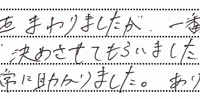 まわりましたが、一番
決めさせてもらいました
常に助かりました。あり